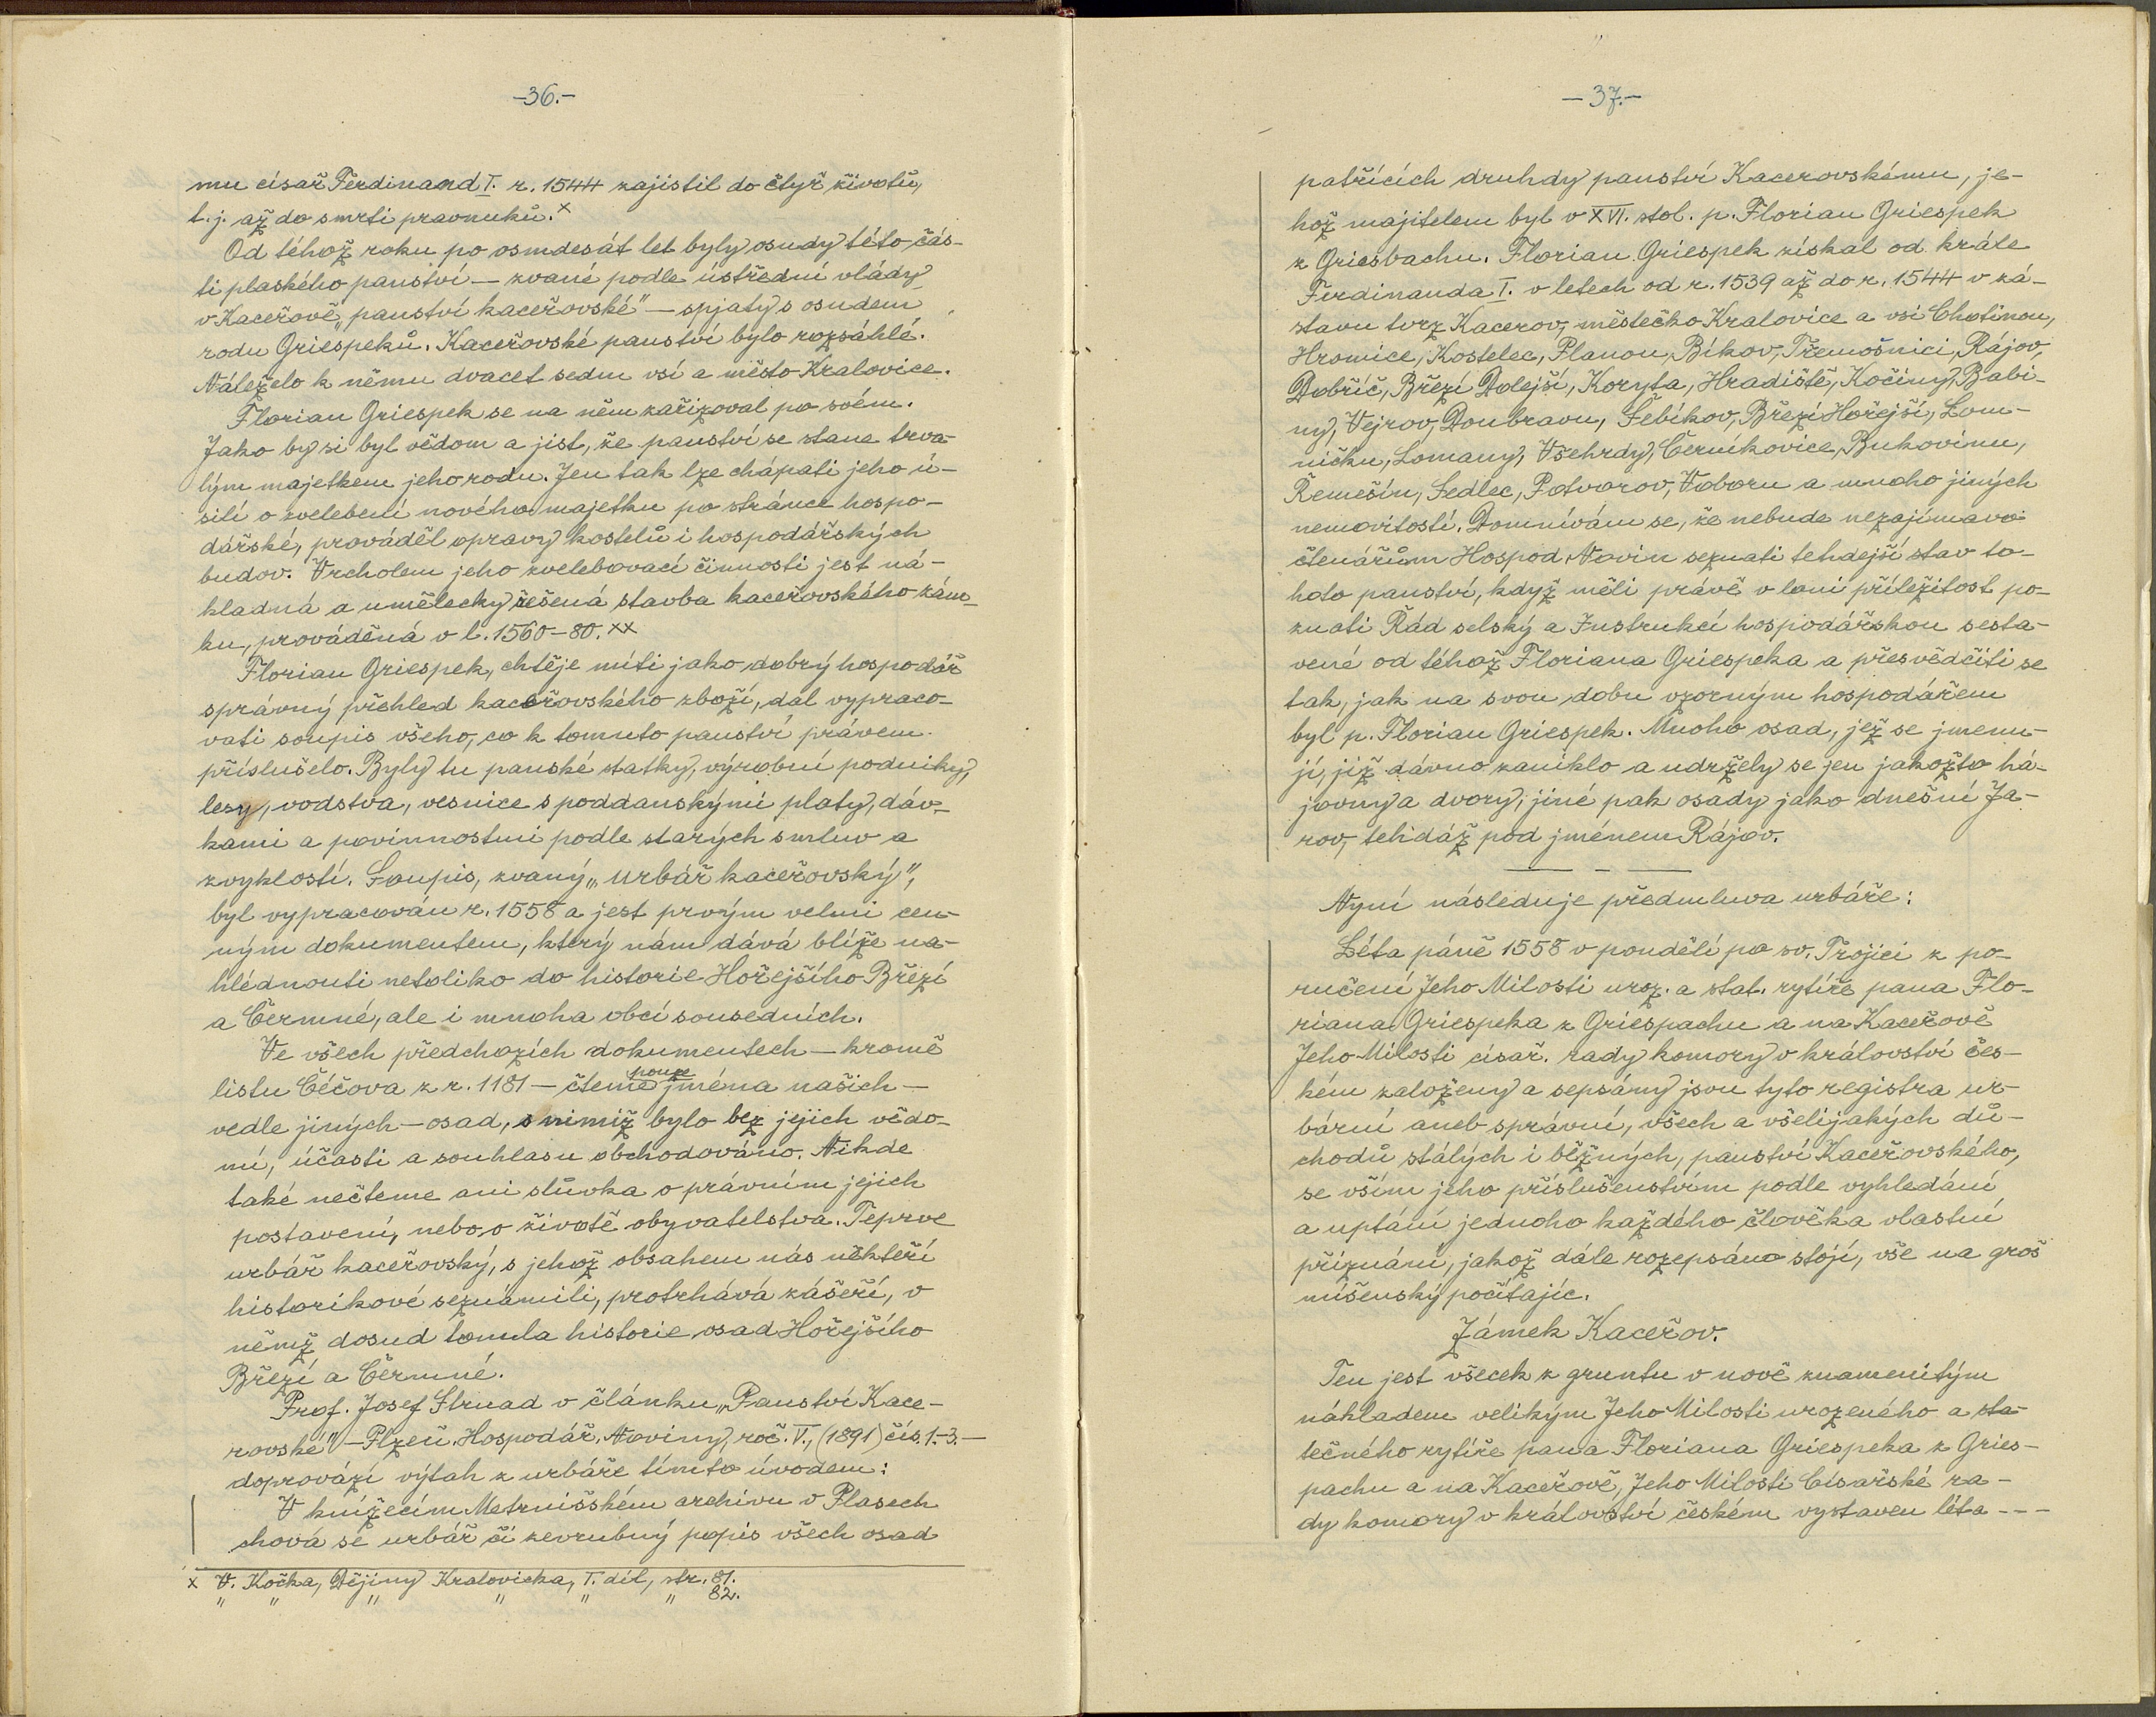 -36.-
mu císař Ferdinand I. r. 1544 zajistil do čtyř životů,
t.j. až do smrti pravnuků.x
Od téhož roku po osmdesát let byly osudy této čás-
ti plaského panství — zvané podle ústřední vlády
v Kaceřově „panství kaceřovské" — spjaty s osudem
rodu Griespeků. Kaceřovské panství bylo rozsáhlé.
Náleželo k němu dvacet sedm vsí a město Kralovice.
Florian Griespek se na něm zařizoval po svém.
Jako by si byl vědom a jist, že panství se stane trva-
lým majetkem jeho rodu. Jen tak lze chápati jeho ú-
silí o zvelebení nového majetku po stránce hospo-
dářské, prováděl opravy kostelů i hospodářských
budov. Vrcholem jeho zvelebovací činnosti jest ná-
kladná a umělecky řešená stavba kaceřovského zám-
ku, prováděná v l. 1560-80.xx
Florian Griespek, chtěje míti jako dobrý hospodář
správný přehled kaceřovského zboží, dal vypraco-
vati soupis všeho, co k tomuto panství právem
příslušelo. Byly tu panské statky, výrobní podniky,
lesy, vodstva, vesnice s poddanskými platy, dáv-
kami a povinnostmi podle starých smluv a
zvyklostí. Soupis, zvaný „Urbář kaceřovský",
byl vypracován r. 1558 a jest prvým velmi cen-
ným dokumentem, který nám dává blíže na-
hlédnouti netoliko do historie Hořejšího Březí
a Čermné, ale i mnoha obcí sousedních.
Ve všech předchozích dokumentech — kromě
listu Čéčova z r. 1181 — čteme pouze jména našich —
vedle jiných — osad, s nimiž bylo bez jejich vědo-
mí, účasti a souhlasu obchodováno. Nikde
také nečteme ani slůvka o právním jejich
postavení, nebo o životě obyvatelstva. Teprve
urbář kaceřovský, s jehož obsahem nás někteří
historikové seznámili, protrhává zášeří, v
němž dosud tonula historie osad Hořejšího
Březí a Čermné.
Prof. Josef Strnad v článku „Panství Kace-
rovské" — Plzeň. Hospodář. Noviny, roč. V., (1891) čís. 1.-3. —
doprovází výtah z urbáře tímto úvodem:
V knížecím Metrnišském archivu v Plasech
chová se urbář či zevrubný popis všech osad
x V. Kočka, Dějiny Kralovicka, I. díl, str. 81.
" " " " " " 82.
-37.-
patřících druhdy panství Kacerovskému, je-
hož majitelem byl v XVI. stol. p. Florian Griespek
z Griesbachu. Florian Griespek získal od krále
Ferdinanda I. v letech od r. 1539 až do r. 1544 v zá-
stavu tvrz Kacerov, městečko Kralovice a vsi Chotinou,
Hromice, Kostelec, Planou, Bíkov, Třemošnici, Rájov,
Dobříč, Březí Dolejší, Koryta, Hradiště, Kočiny, Babi-
ny, Vejrov, Doubravu, Šebíkov, Březí Hořejší, Lom-
ničku, Lomany, Všehrdy, Černíkovice, Bukovinu,
Řemešín, Sedlec, Potvorov, Voboru a mnoho jiných
nemovitostí. Domnívám se, že nebude nezajímavo
čtenářům Hospod. Novin seznati tehdejší stav to-
hoto panství, když měli právě v loni příležitost po-
znati Řád selský a Instrukcí hospodářskou sesta-
vené od téhož Floriana Griespeka a přesvědčiti se
tak, jak na svou dobu vzorným hospodářem
byl p. Florian Griespek. Mnoho osad, jež se jmenu-
jí, již dávno zaniklo a udržely se jen jakožto há-
jovny a dvory, jiné pak osady jako dnešní Ja-
rov, tehdáž pod jménem Rájov.
Nyní následuje předmluva urbáře:
Léta páně 1558 v pondělí po sv. Trojici z po-
ručení Jeho Milosti uroz. a stat. rytíře pana Flo-
riana Griespeka z Griespachu a na Kaceřově
Jeho Milosti císař. rady komory v království čes-
kém založeny a sepsány jsou tyto registra ur-
bární aneb správní, všech a všelijakých dů-
chodů stálých i běžných, panství Kaceřovského,
se vším jeho příslušenstvím podle vyhledání
a uptání jednoho každého člověka vlastní
přiznání, jakož dále rozepsáno stojí, vše na groš
míšenský počítajíc.
Zámek Kaceřov.
Ten jest všecek z gruntu v nově znamenitým
nákladem velikým Jeho Milosti urozeného a sta-
tečného rytíře pana Floriana Griespeka z Gries-
pachu a na Kaceřově, Jeho Milosti Císařské ra-
dy komory v království českém vystaven léta ---